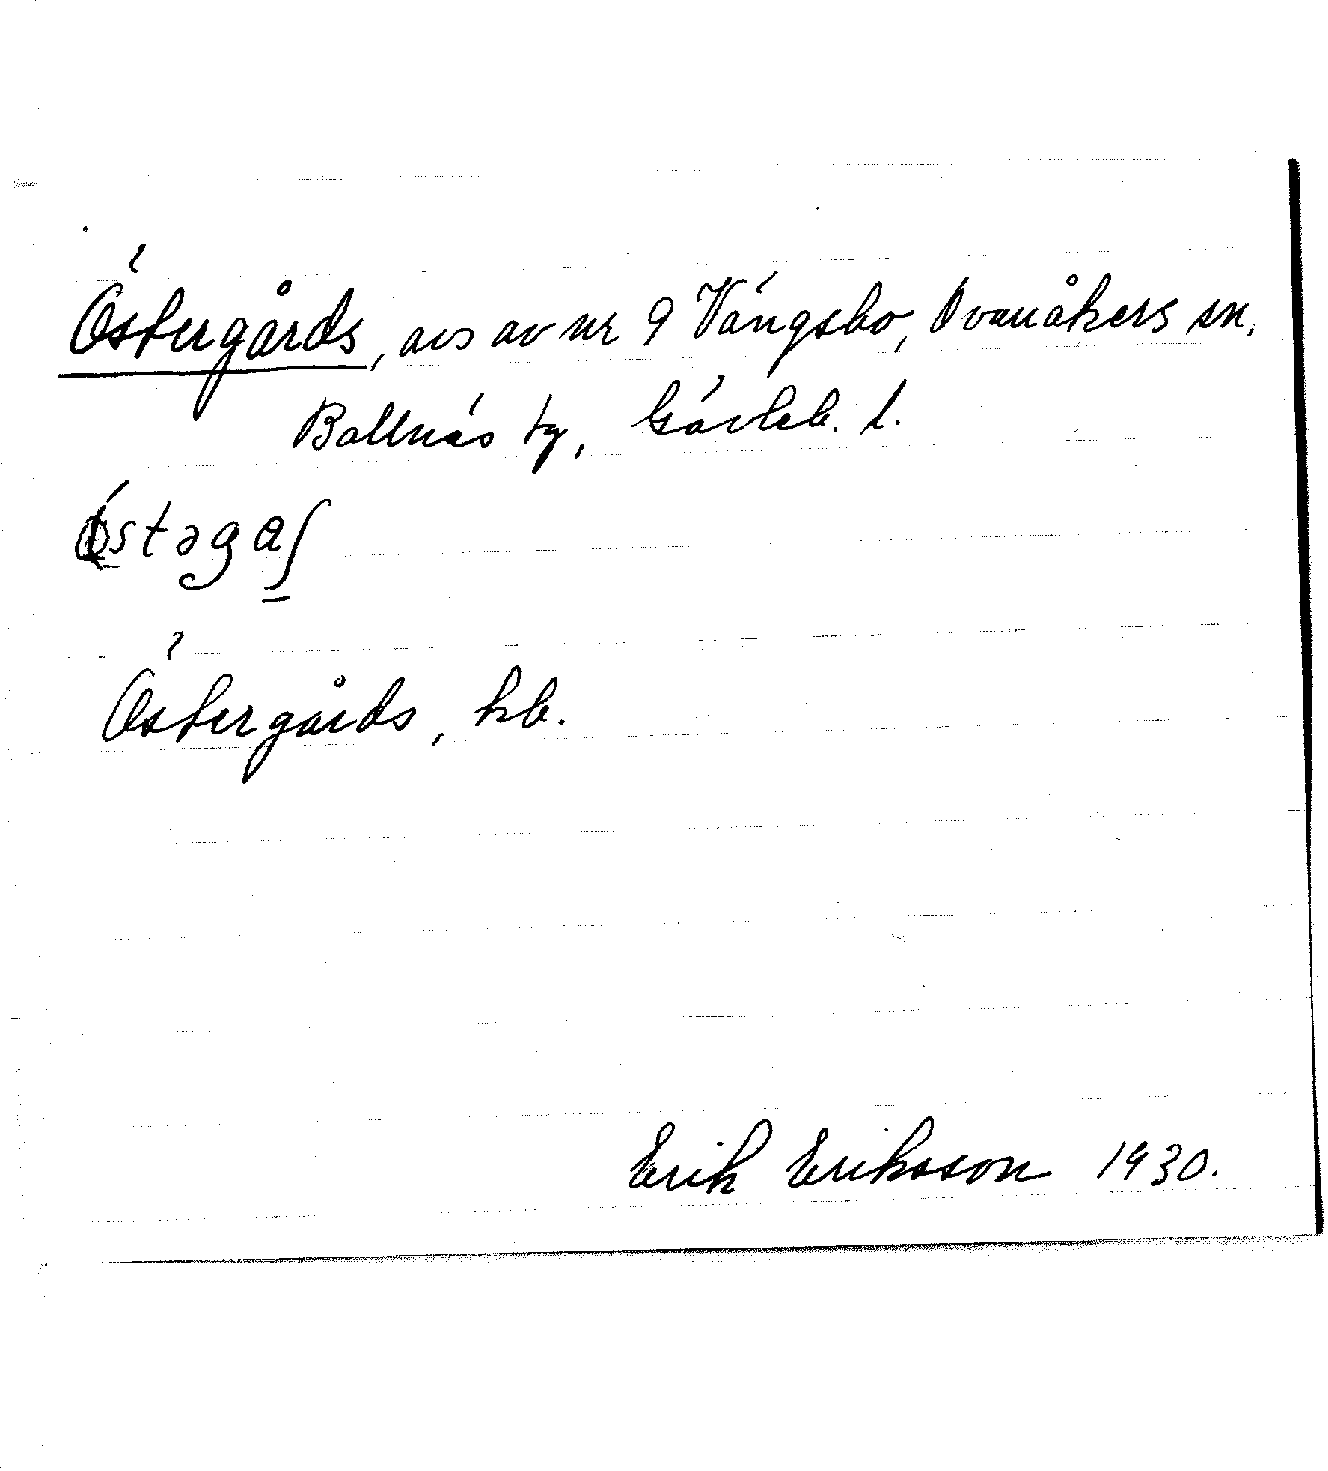 Östergårds, avs av nr 9 Vängsbo, Ovanåkers sn,
Bollnäs tg, Gävleb. l.
östəgaʃ
Östergårds, kb.
Erik Eriksson 1930.